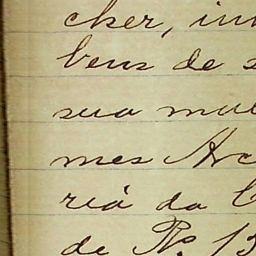 cker, in
bens de s
sua mul
mes Arc
riá da C
de Nº. 13